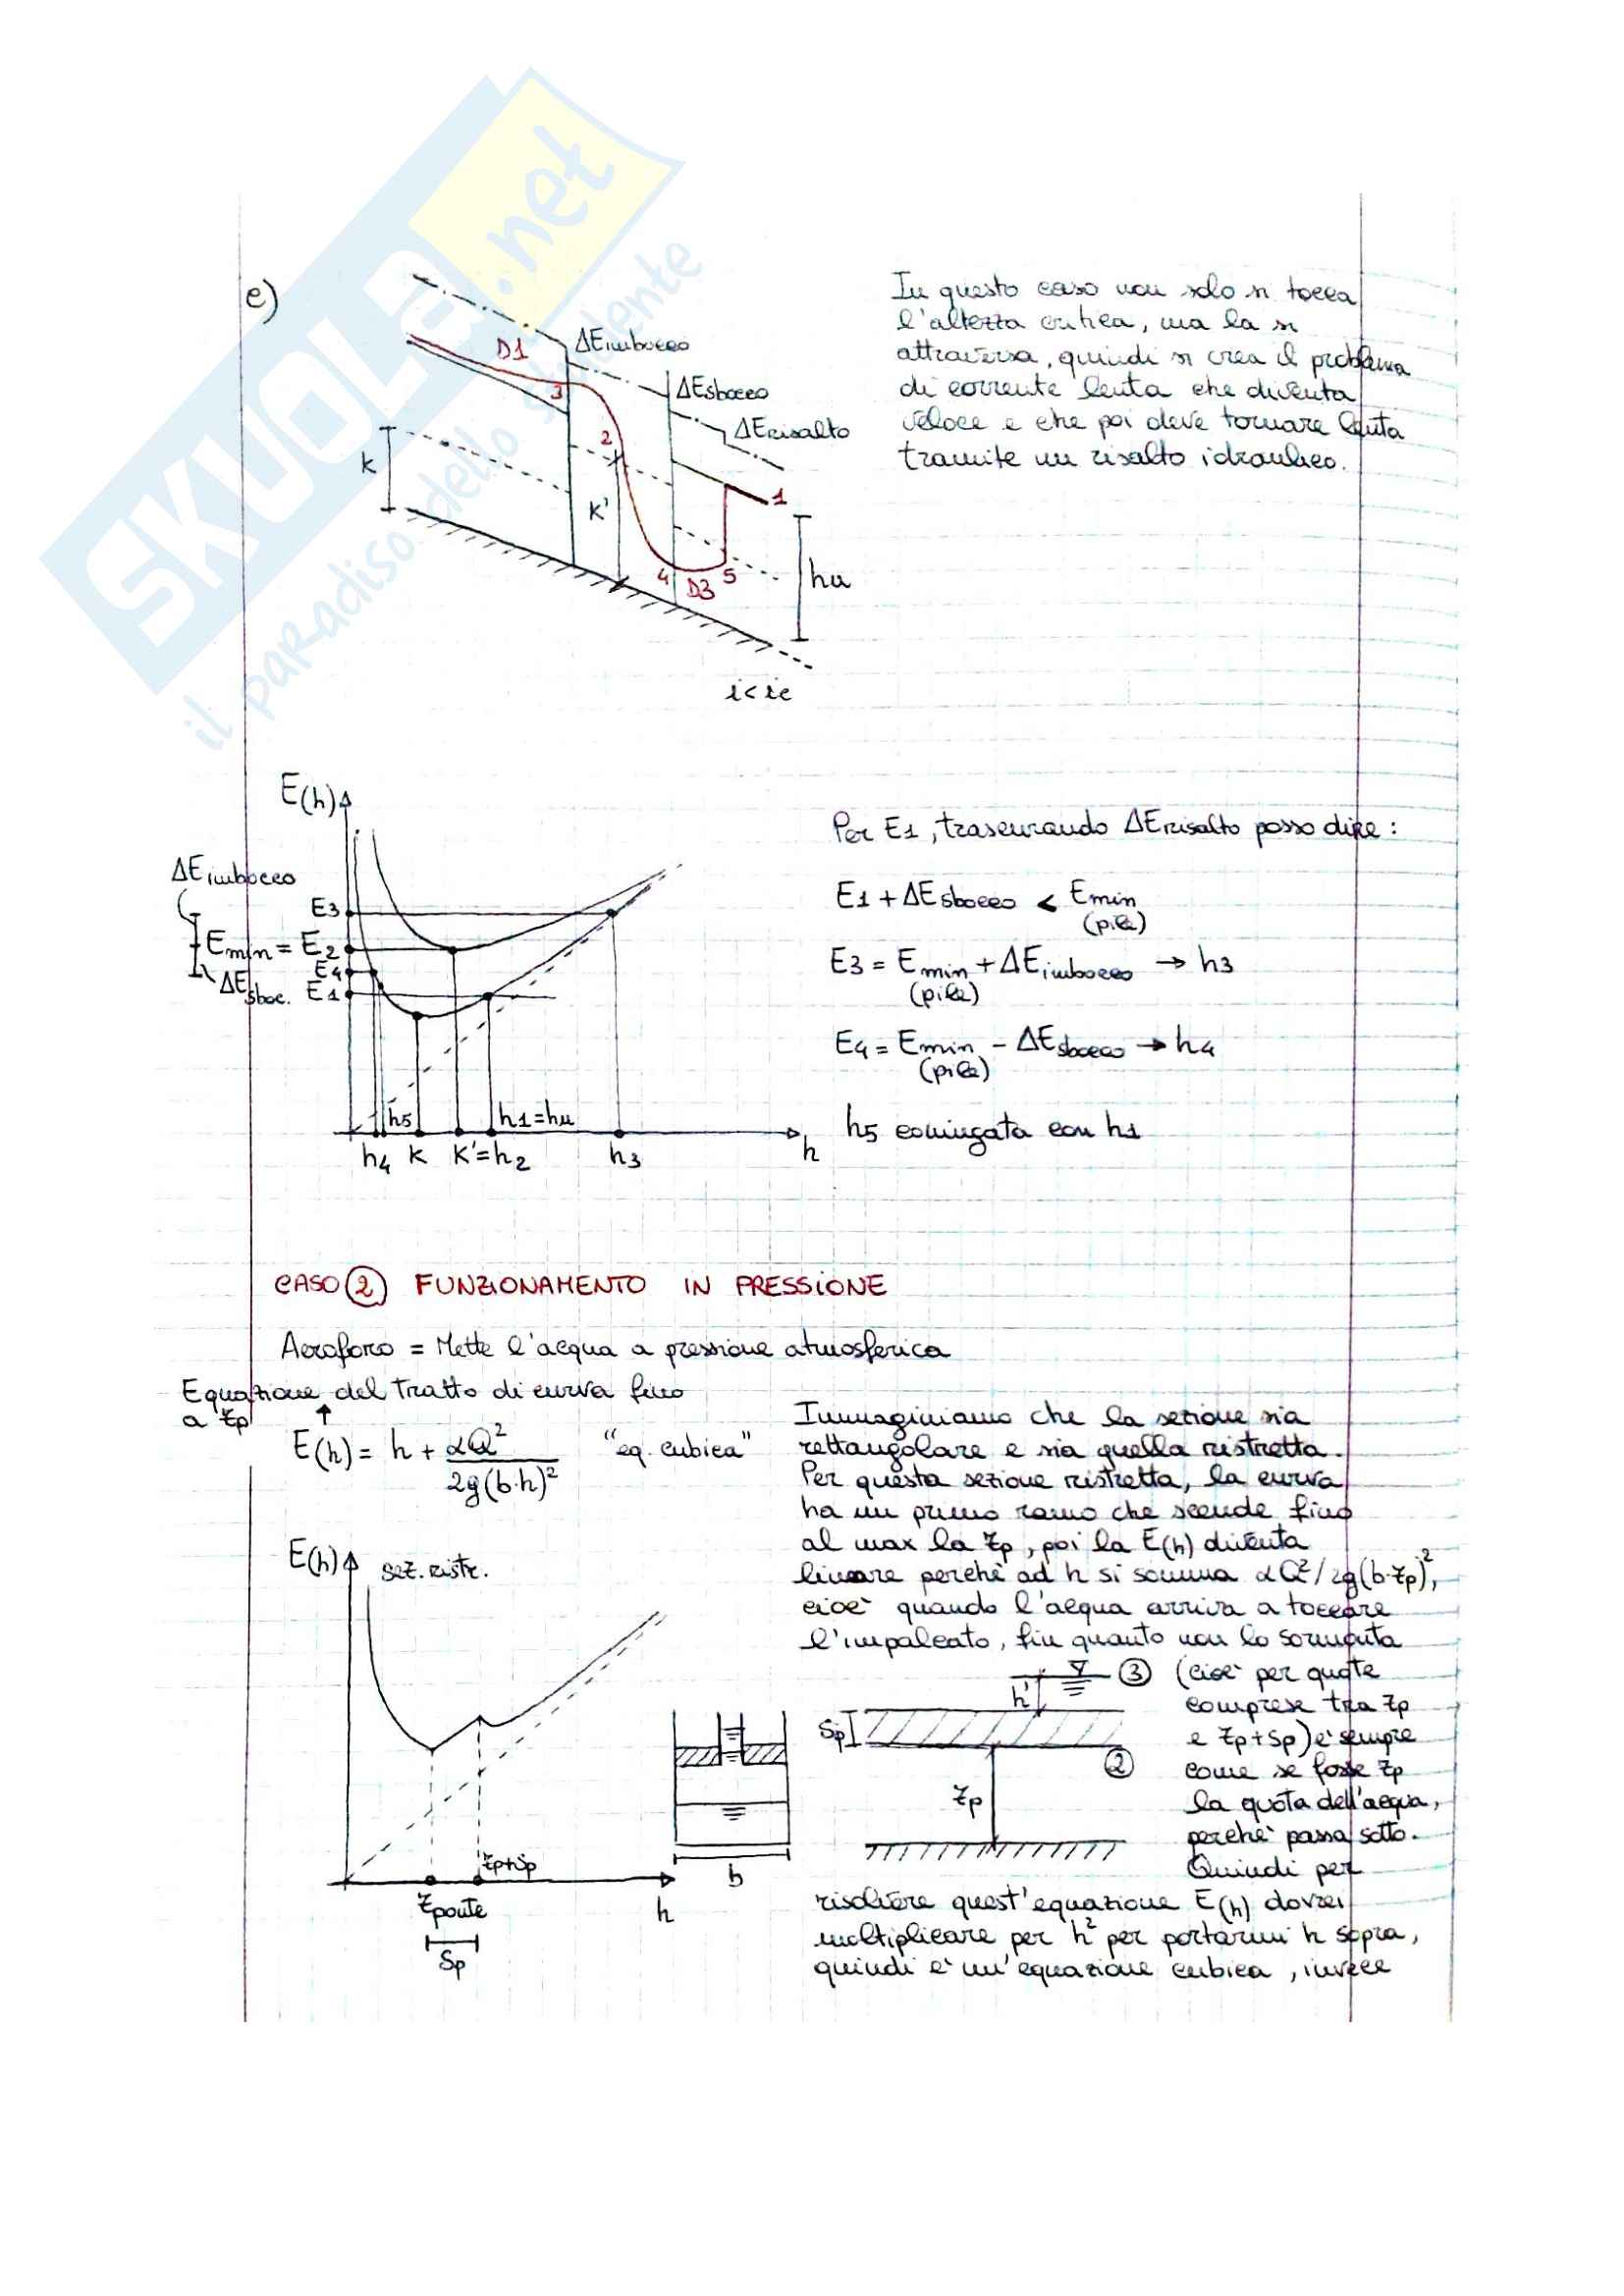 SKUOLA.net
il paradiso dello studente
e)
D1
ΔEimbocco
ΔEsbocco
ΔErisalto
3
2
K
K'
1
4
D3
5
hu
i<ic
In questo caso non solo si tocca
l'altezza critica, ma la si
attraversa, quindi si crea il problema
di corrente lenta che diventa
veloce e che poi deve tornare lenta
tramite un risalto idraulico.
E(h)
ΔEimbocco
E3
Emin = E2
E4
ΔEsboc.
E1
h5
h1=hu
h4
K
K'=h2
h3
h
Per E1, trascurando ΔErisalto posso dire:
E1 + ΔEsbocco < Emin
(pile)
E3 = Emin + ΔEimbocco → h3
(pile)
E4 = Emin - ΔEsbocco → h4
(pile)
h5 coniugata con h1
CASO ② FUNZIONAMENTO IN PRESSIONE
Aeroforo = Mette l'acqua a pressione atmosferica
Equazione del tratto di curva fino
a zp ↑
E(h) = h + αQ²/2g(b·h)² "eq. cubica"
Immaginiamo che la sezione sia
rettangolare e sia quella ristretta.
Per questa sezione ristretta, la curva
ha un primo ramo che scende fino
al max la zp, poi la E(h) diventa
lineare perchè ad h si somma αQ²/2g(b·zp)²,
cioè quando l'acqua arriva a toccare
l'impalcato, fin quanto non lo sormonta
(cioè per quote
comprese tra zp
e zp+Sp) è sempre
come se fosse zp
la quota dell'acqua,
perchè passa sotto.
Quindi per
risolvere quest'equazione E(h) dovrei
moltiplicare per h² per portarmi h sopra,
quindi è un'equazione cubica, invece
E(h)
sez. ristr.
zp+Sp
zponte
Sp
h
b
h'
③
Sp
②
zp